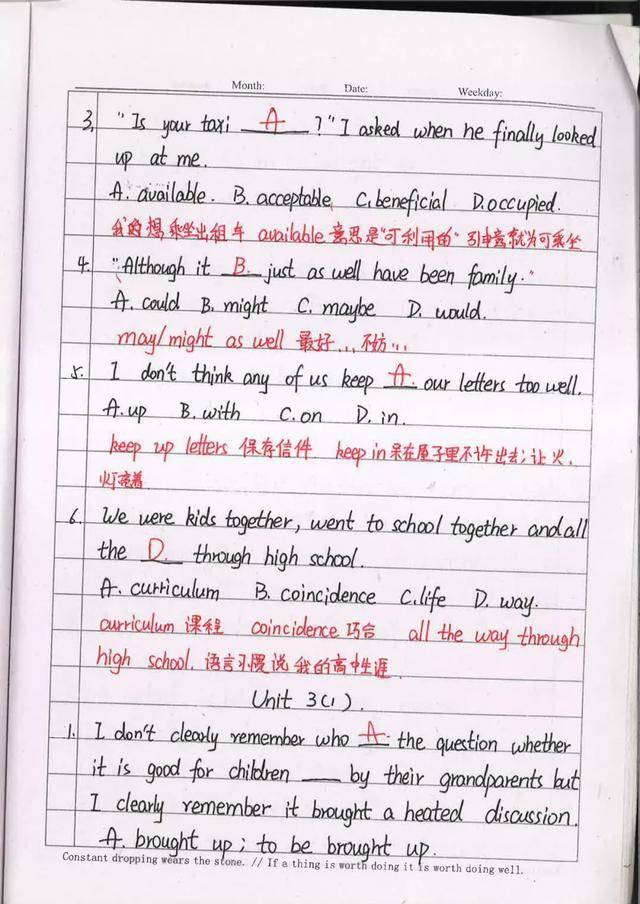 Month: Date: Weekday:
3, "Is your taxi A ?" I asked when he finally looked
up at me.
A. available. B. acceptable C. beneficial D. occupied.
我的想乘坐出租车 available 意思是"可利用的" 引申意就为可乘坐
4. "Although it B. just as well have been family."
A. could B. might C. maybe D. would.
may/might as well 最好... 不妨...
5. I don't think any of us keep A. our letters too well.
A. up B. with C. on D. in.
keep up letters 保存信件 keep in 呆在屋子里不许出去; 让火、
灯亮着
6. We were kids together, went to school together and all
the D. through high school.
A. curriculum B. coincidence C. life D. way.
curriculum 课程 coincidence 巧合 all the way through
high school. 语言习惯说我的高中生涯
Unit 3(1).
1. I don't clearly remember who A. the question whether
it is good for children ___ by their grandparents but
I clearly remember it brought a heated discussion.
A. brought up; to be brought up.
Constant dropping wears the stone. // If a thing is worth doing it is worth doing well.